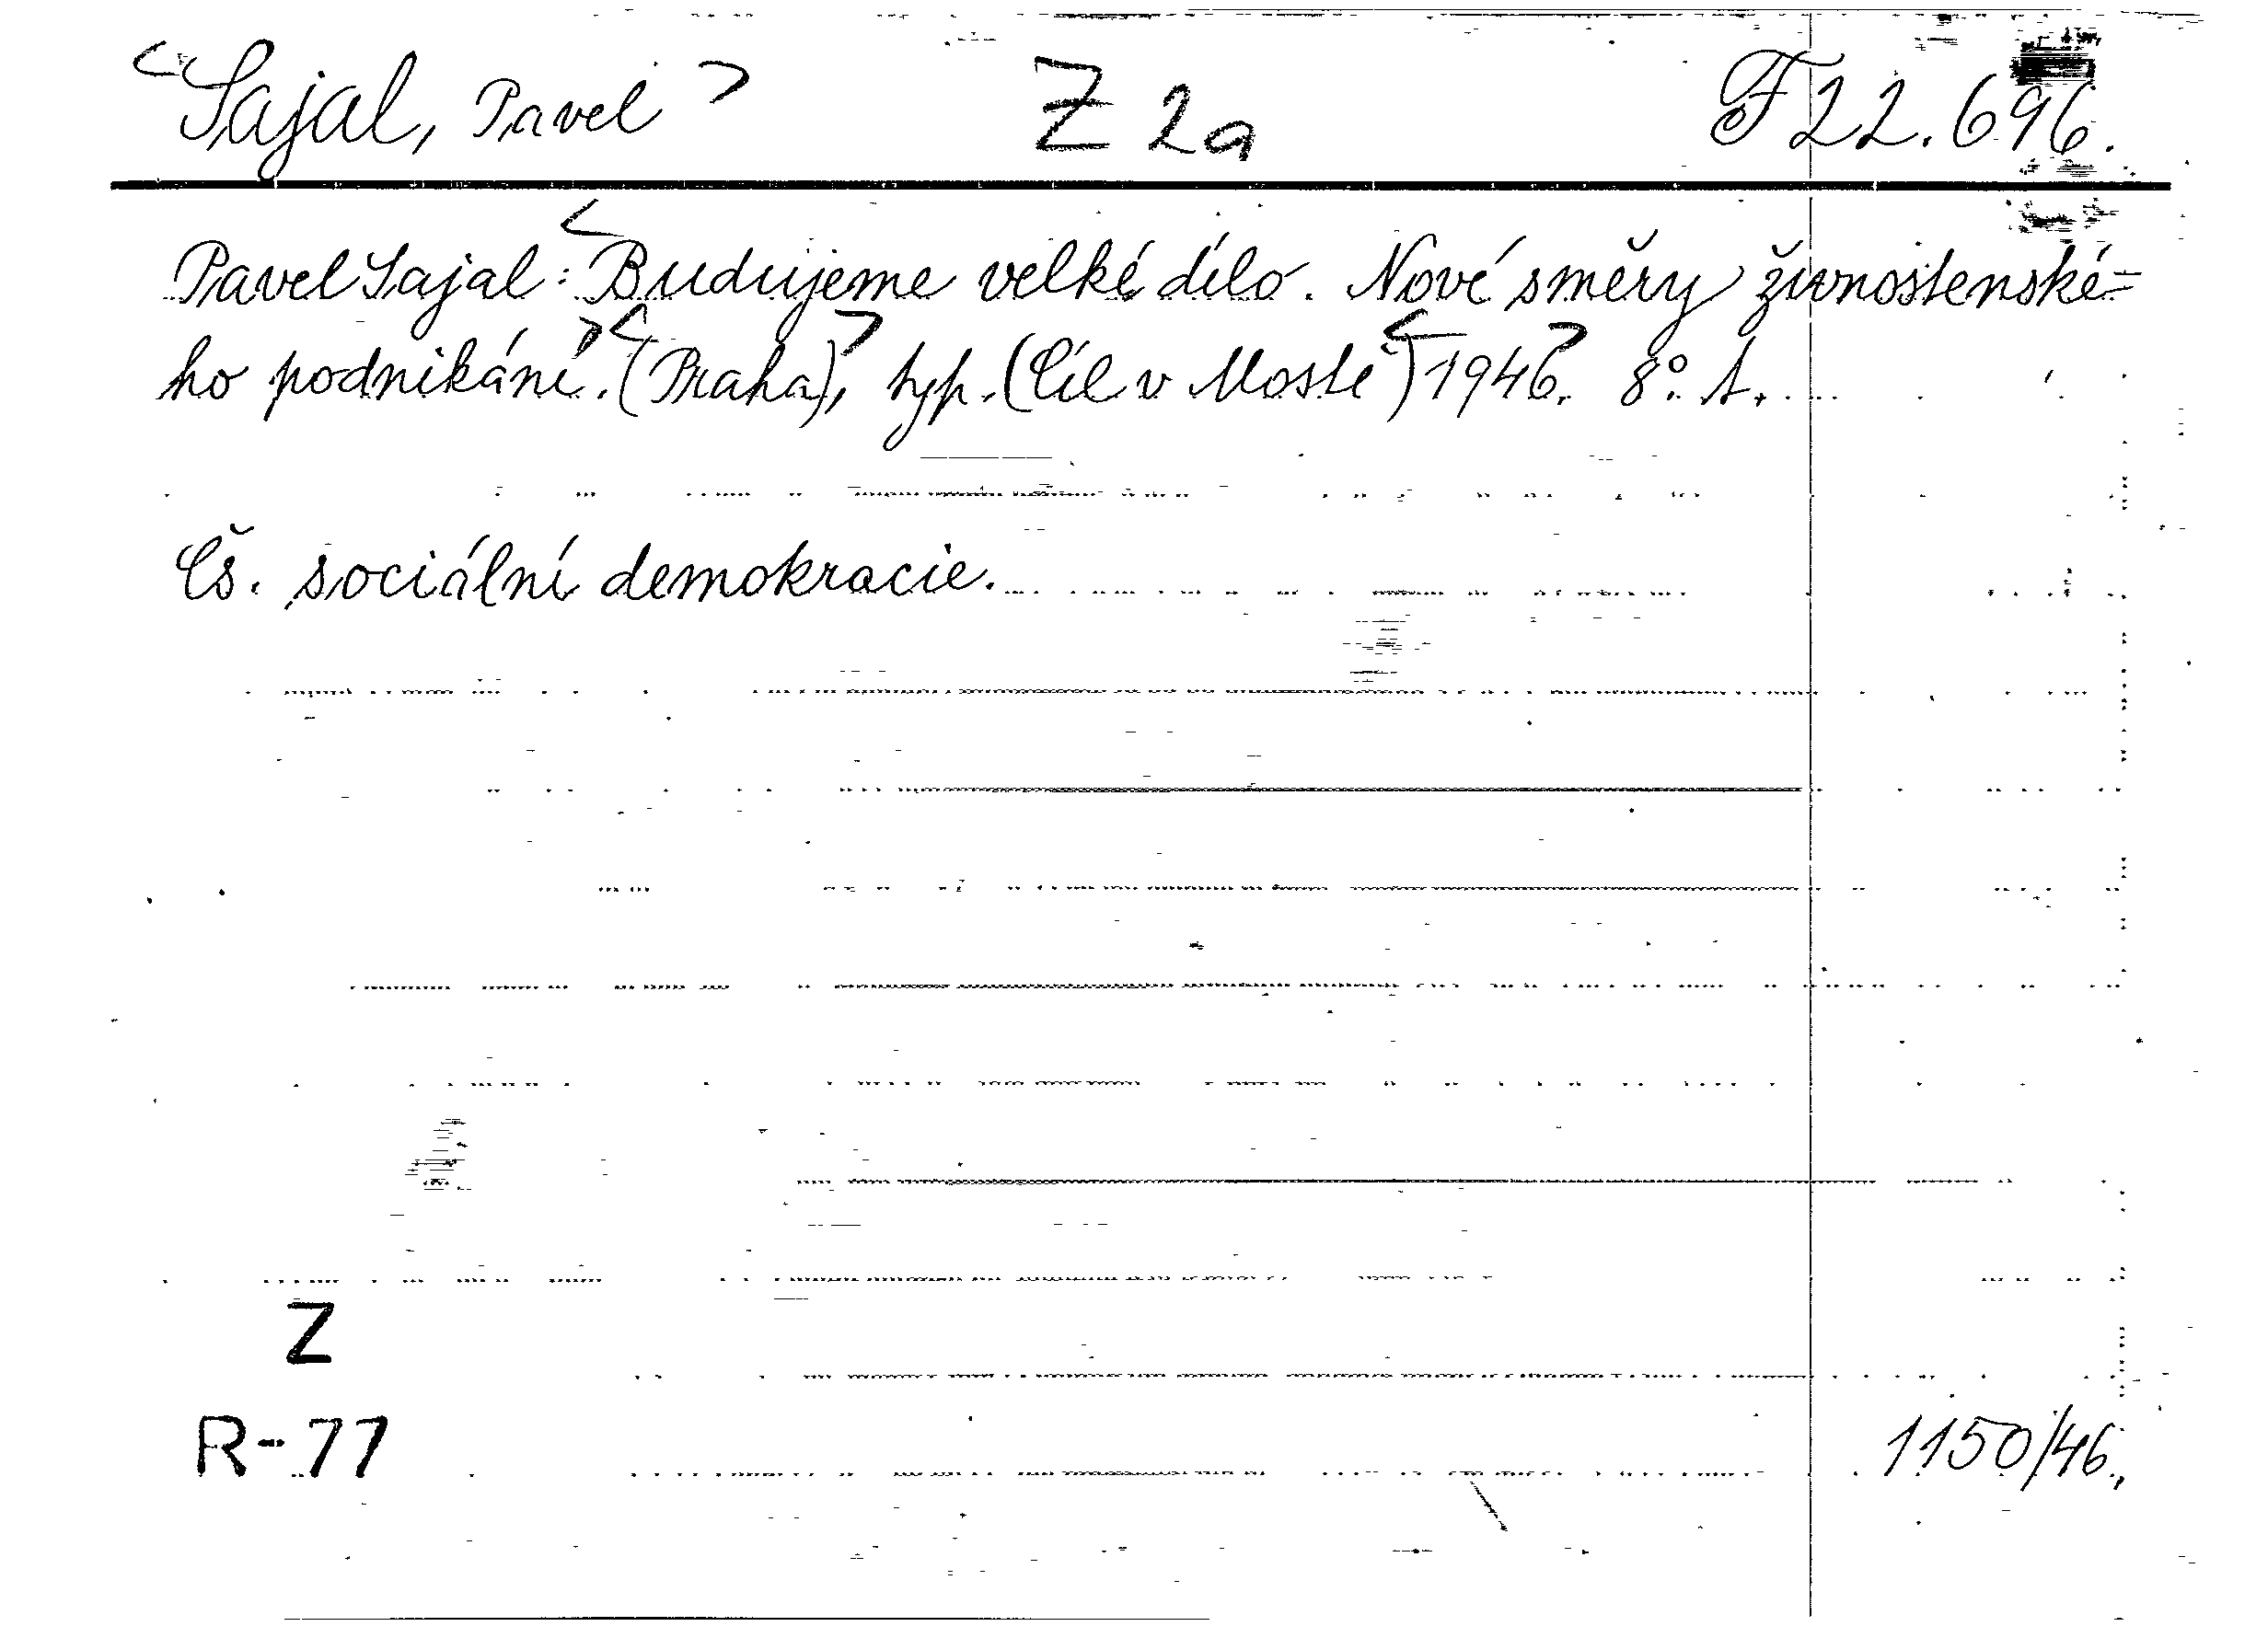 <Sajal, Pavel> Z 2a F 22.696.
Pavel Sajal: <Budujeme velké dílo. Nové směry živnostenské-
ho podnikání.> <(Praha),> typ. (Cíl v Mostě) <1946>. 8°. A.
Čs. sociální demokracie.
Z
R-77
1150/46.